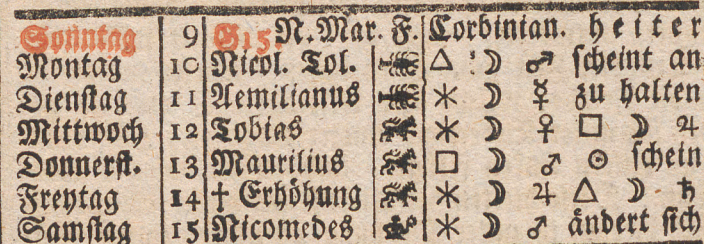 Sonntag 9 G15. N. Mar. F. Corbinian. heiter
Montag 10 Nicol. Tol. △ ☽ ♂ ſcheint an-
Dienſtag 11 Aemilianus ⚹ ☽ ☿ zu halten
Mittwoch 12 Tobias ⚹ ☽ ♀ □ ☽ ♃
Donnerſt. 13 Maurilius □ ☽ ♂ ☉ ſchein
Freytag 14 † Erhöhung ⚹ ☽ ♃ △ ☽ ♄
Samſtag 15 Nicomedes ⚹ ☽ ♂ ändert ſich